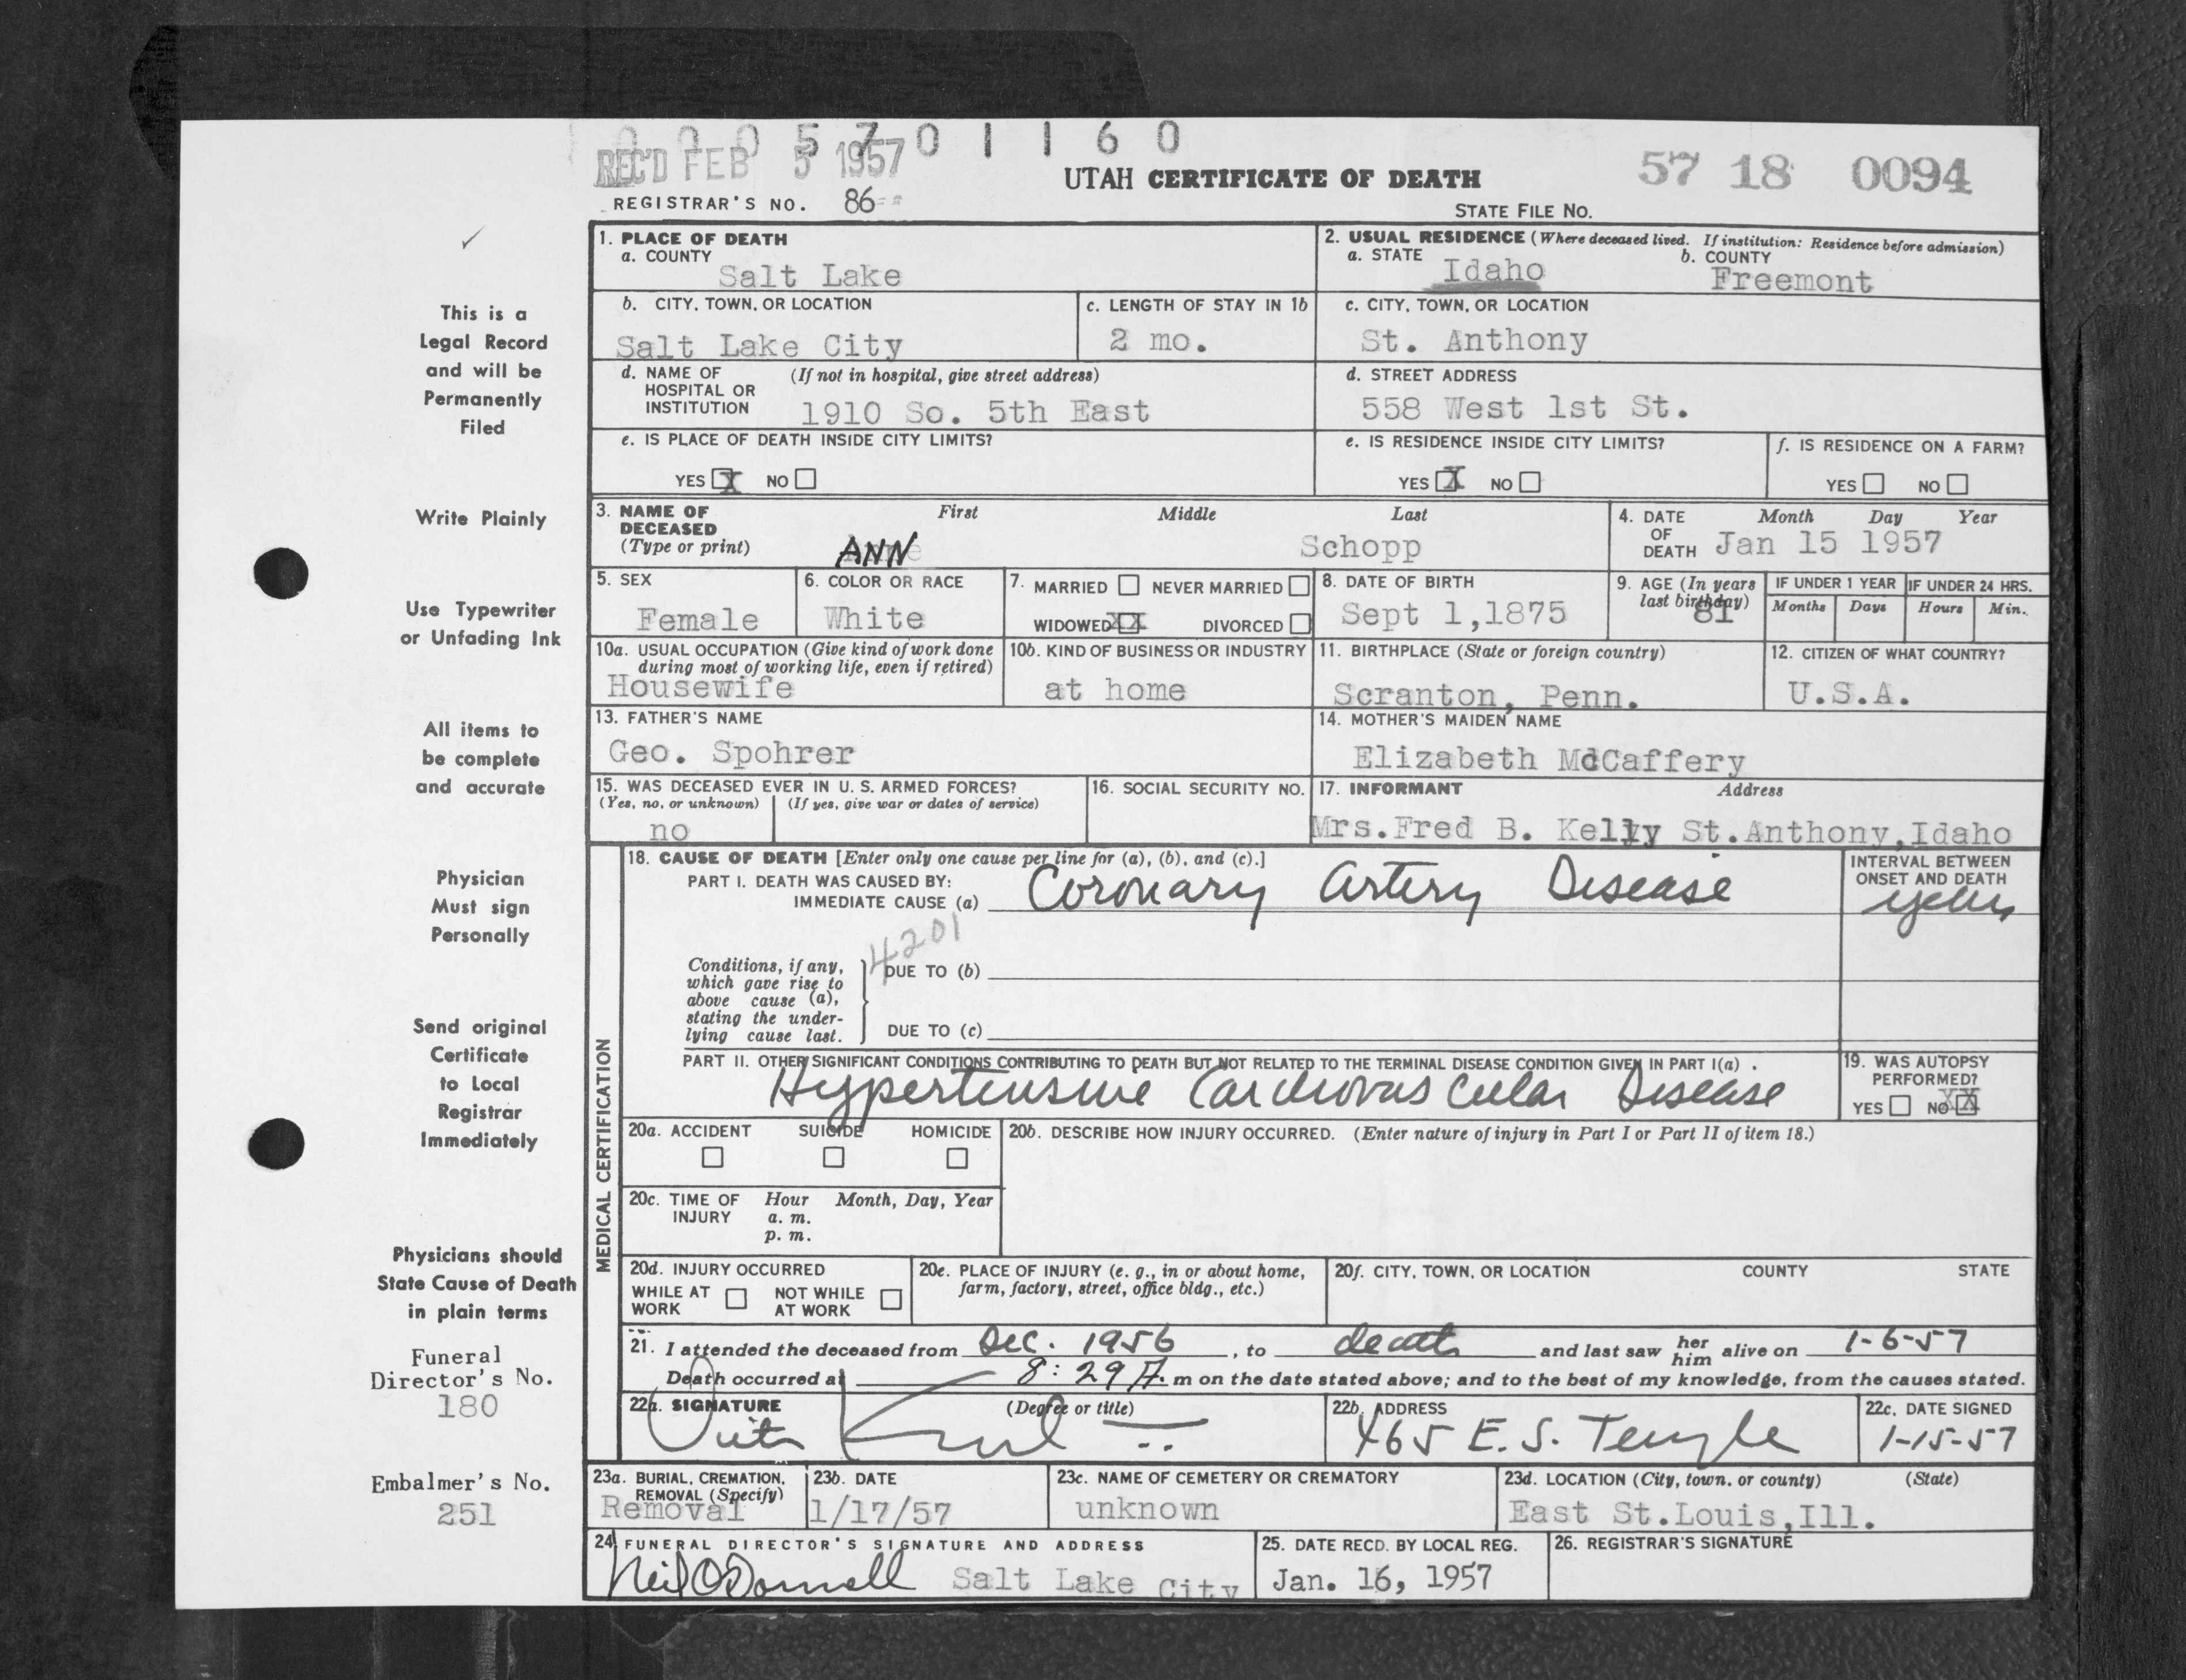 0 0 0 5 7 0 1 1 6 0
REC'D FEB 5 1957
UTAH CERTIFICATE OF DEATH
57 18 0094
REGISTRAR'S NO. 86
STATE FILE NO.
This is a
Legal Record
and will be
Permanently
Filed
Write Plainly
Use Typewriter
or Unfading Ink
All items to
be complete
and accurate
Physician
Must sign
Personally
Send original
Certificate
to Local
Registrar
Immediately
Physicians should
State Cause of Death
in plain terms
Funeral
Director's No.
180
Embalmer's No.
251
1. PLACE OF DEATH
a. COUNTY
Salt Lake
2. USUAL RESIDENCE (Where deceased lived. If institution: Residence before admission)
a. STATE Idaho b. COUNTY Freemont
b. CITY, TOWN, OR LOCATION
Salt Lake City
c. LENGTH OF STAY IN 1b
2 mo.
c. CITY, TOWN, OR LOCATION
St. Anthony
d. NAME OF (If not in hospital, give street address)
HOSPITAL OR
INSTITUTION 1910 So. 5th East
d. STREET ADDRESS
558 West 1st St.
e. IS PLACE OF DEATH INSIDE CITY LIMITS?
YES X NO
e. IS RESIDENCE INSIDE CITY LIMITS?
YES X NO
f. IS RESIDENCE ON A FARM?
YES NO
3. NAME OF First Middle Last
DECEASED
(Type or print) ANN Schopp
4. DATE Month Day Year
OF
DEATH Jan 15 1957
5. SEX
Female
6. COLOR OR RACE
White
7. MARRIED NEVER MARRIED
WIDOWED XX DIVORCED
8. DATE OF BIRTH
Sept 1,1875
9. AGE (In years
last birthday)
81
IF UNDER 1 YEAR
Months Days
IF UNDER 24 HRS.
Hours Min.
10a. USUAL OCCUPATION (Give kind of work done
during most of working life, even if retired)
Housewife
10b. KIND OF BUSINESS OR INDUSTRY
at home
11. BIRTHPLACE (State or foreign country)
Scranton, Penn.
12. CITIZEN OF WHAT COUNTRY?
U.S.A.
13. FATHER'S NAME
Geo. Spohrer
14. MOTHER'S MAIDEN NAME
Elizabeth McCaffery
15. WAS DECEASED EVER IN U. S. ARMED FORCES?
(Yes, no, or unknown) (If yes, give war or dates of service)
no
16. SOCIAL SECURITY NO.
17. INFORMANT Address
Mrs.Fred B. Kelly St.Anthony,Idaho
MEDICAL CERTIFICATION
18. CAUSE OF DEATH [Enter only one cause per line for (a), (b), and (c).]
PART I. DEATH WAS CAUSED BY:
IMMEDIATE CAUSE (a) Coronary Artery Disease
INTERVAL BETWEEN
ONSET AND DEATH
years
4201
Conditions, if any,
which gave rise to
above cause (a),
stating the under-
lying cause last.
DUE TO (b)
DUE TO (c)
PART II. OTHER SIGNIFICANT CONDITIONS CONTRIBUTING TO DEATH BUT NOT RELATED TO THE TERMINAL DISEASE CONDITION GIVEN IN PART I(a).
Hypertensive Cardiovascular Disease
19. WAS AUTOPSY
PERFORMED?
YES NO XX
20a. ACCIDENT SUICIDE HOMICIDE
20b. DESCRIBE HOW INJURY OCCURRED. (Enter nature of injury in Part I or Part II of item 18.)
20c. TIME OF Hour Month, Day, Year
INJURY a. m.
p. m.
20d. INJURY OCCURRED
WHILE AT NOT WHILE
WORK AT WORK
20e. PLACE OF INJURY (e. g., in or about home,
farm, factory, street, office bldg., etc.)
20f. CITY, TOWN, OR LOCATION COUNTY STATE
21. I attended the deceased from Dec. 1956, to death and last saw her him alive on 1-6-57
Death occurred at 8:29 A. m on the date stated above; and to the best of my knowledge, from the causes stated.
22a. SIGNATURE (Degree or title)
22b. ADDRESS
465 E. S. Temple
22c. DATE SIGNED
1-15-57
23a. BURIAL, CREMATION,
REMOVAL (Specify)
Removal
23b. DATE
1/17/57
23c. NAME OF CEMETERY OR CREMATORY
unknown
23d. LOCATION (City, town, or county) (State)
East St.Louis,Ill.
24 FUNERAL DIRECTOR'S SIGNATURE AND ADDRESS
Neil O'Donnell Salt Lake City
25. DATE RECD. BY LOCAL REG.
Jan. 16, 1957
26. REGISTRAR'S SIGNATURE